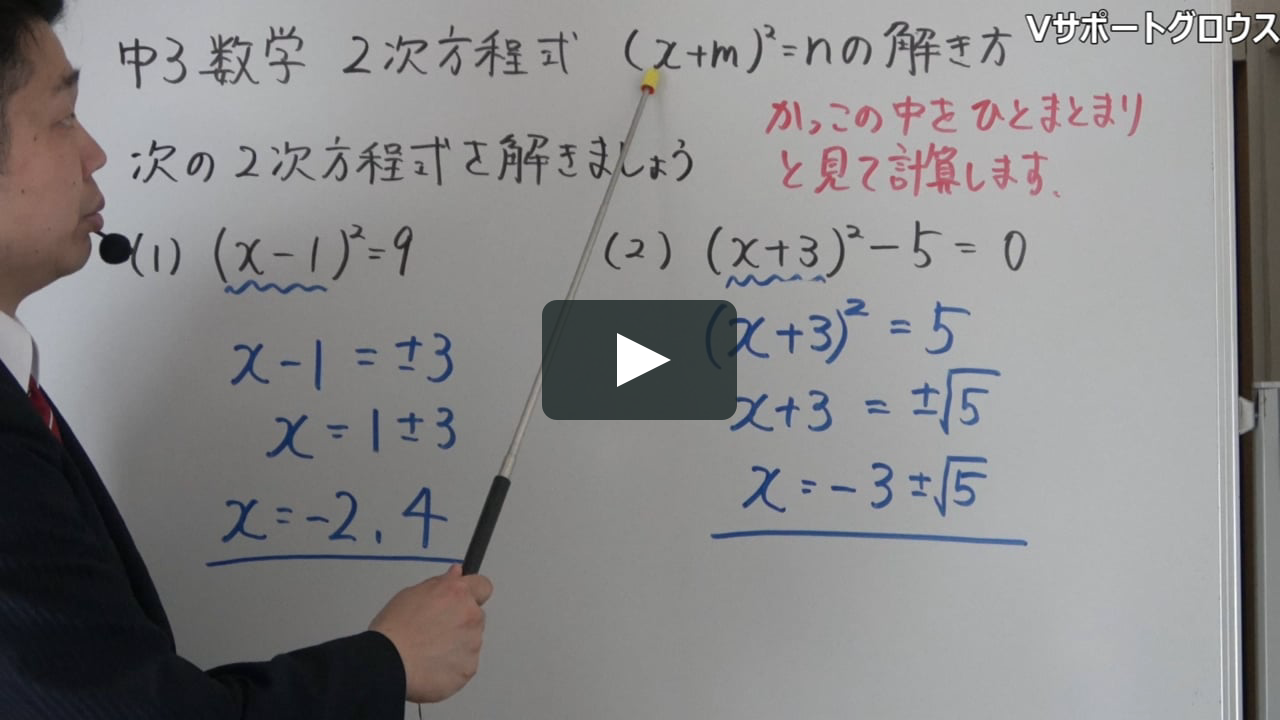 Vサポートグロウス
中3数学 2次方程式 (x+m)²=nの解き方
かっこの中をひとまとまり
と見て計算します。
次の2次方程式を解きましょう
(1) (x-1)²=9
x-1=±3
x=1±3
x=-2, 4
(2) (x+3)²-5=0
(x+3)²=5
x+3=±√5
x=-3±√5